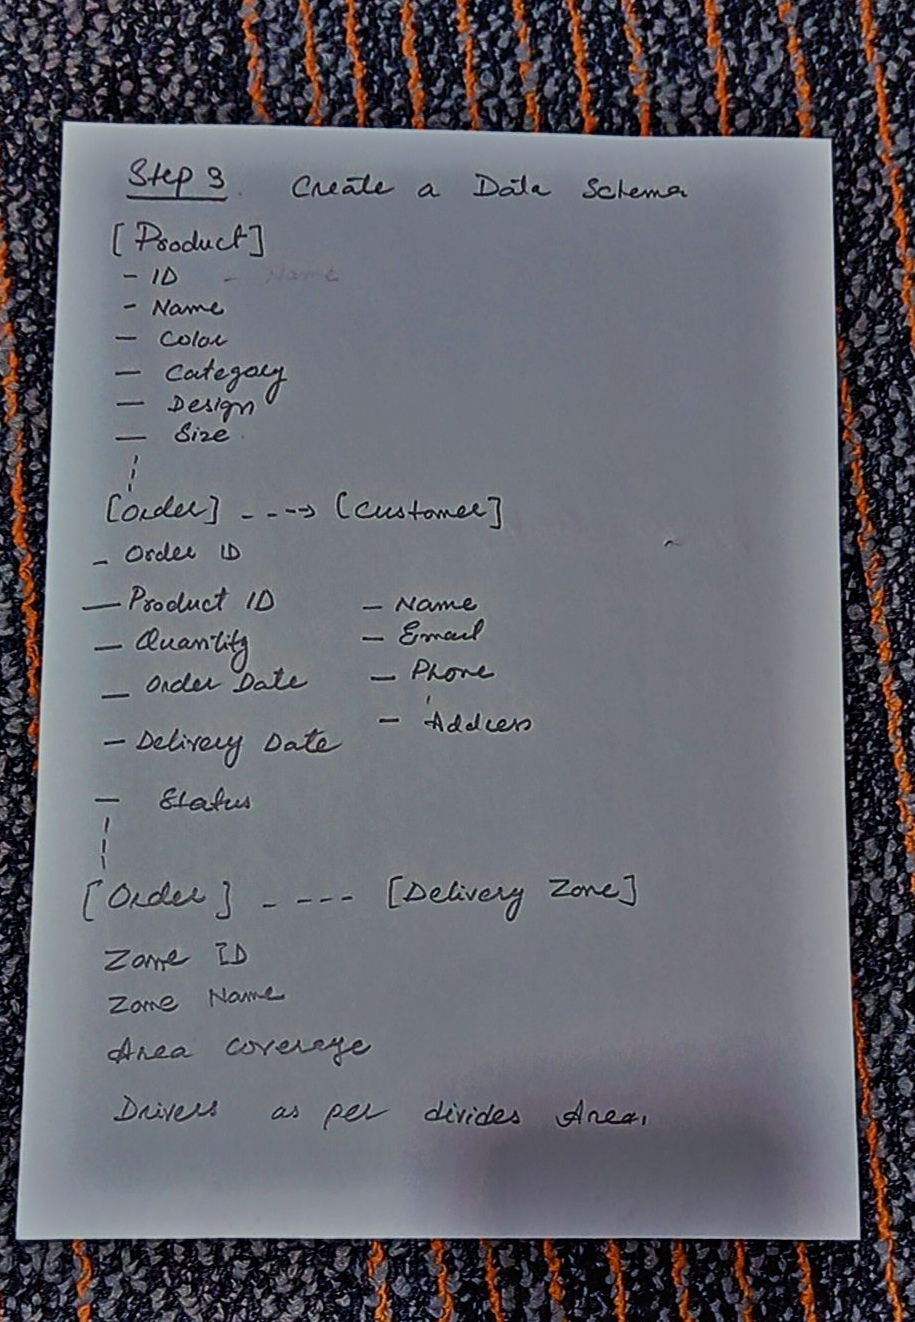 Step 3. Create a Data Schema
[Product]
- ID - Name
- Name
- Color
- Category
- Design
- Size
[Order] ----> [Customer]
- Order ID
- Product ID - Name
- Quantity - Email
- Order Date - Phone
- Address
- Delivery Date
- Status
[Order] ---- [Delivery Zone]
Zone ID
Zone Name
Area Coverage
Drivers as per divides Area.